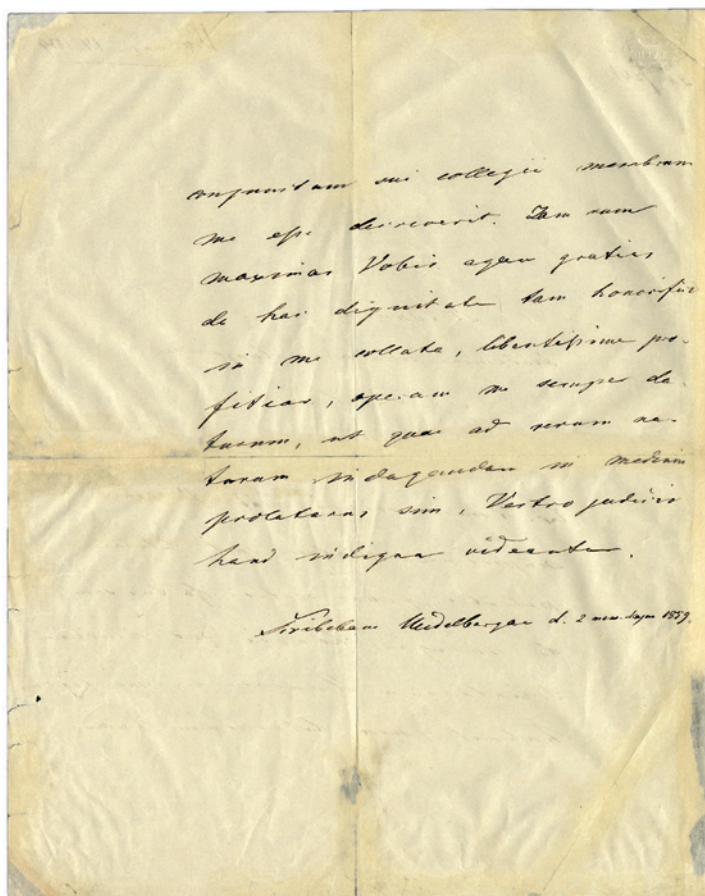 sui collegii membrum
me esse decreverit. Jam cum
maximas Vobis agam gratias
de hac dignitate tam honorifice
in me collata, libentissime pro-
fitior, operam me semper da-
turum, ut quae ad rerum na-
turam indagandam in medium
prolaturus sim, Vestro judicio
haud indigna videantur.
Scribebam Heidelbergae d. 2 1859.